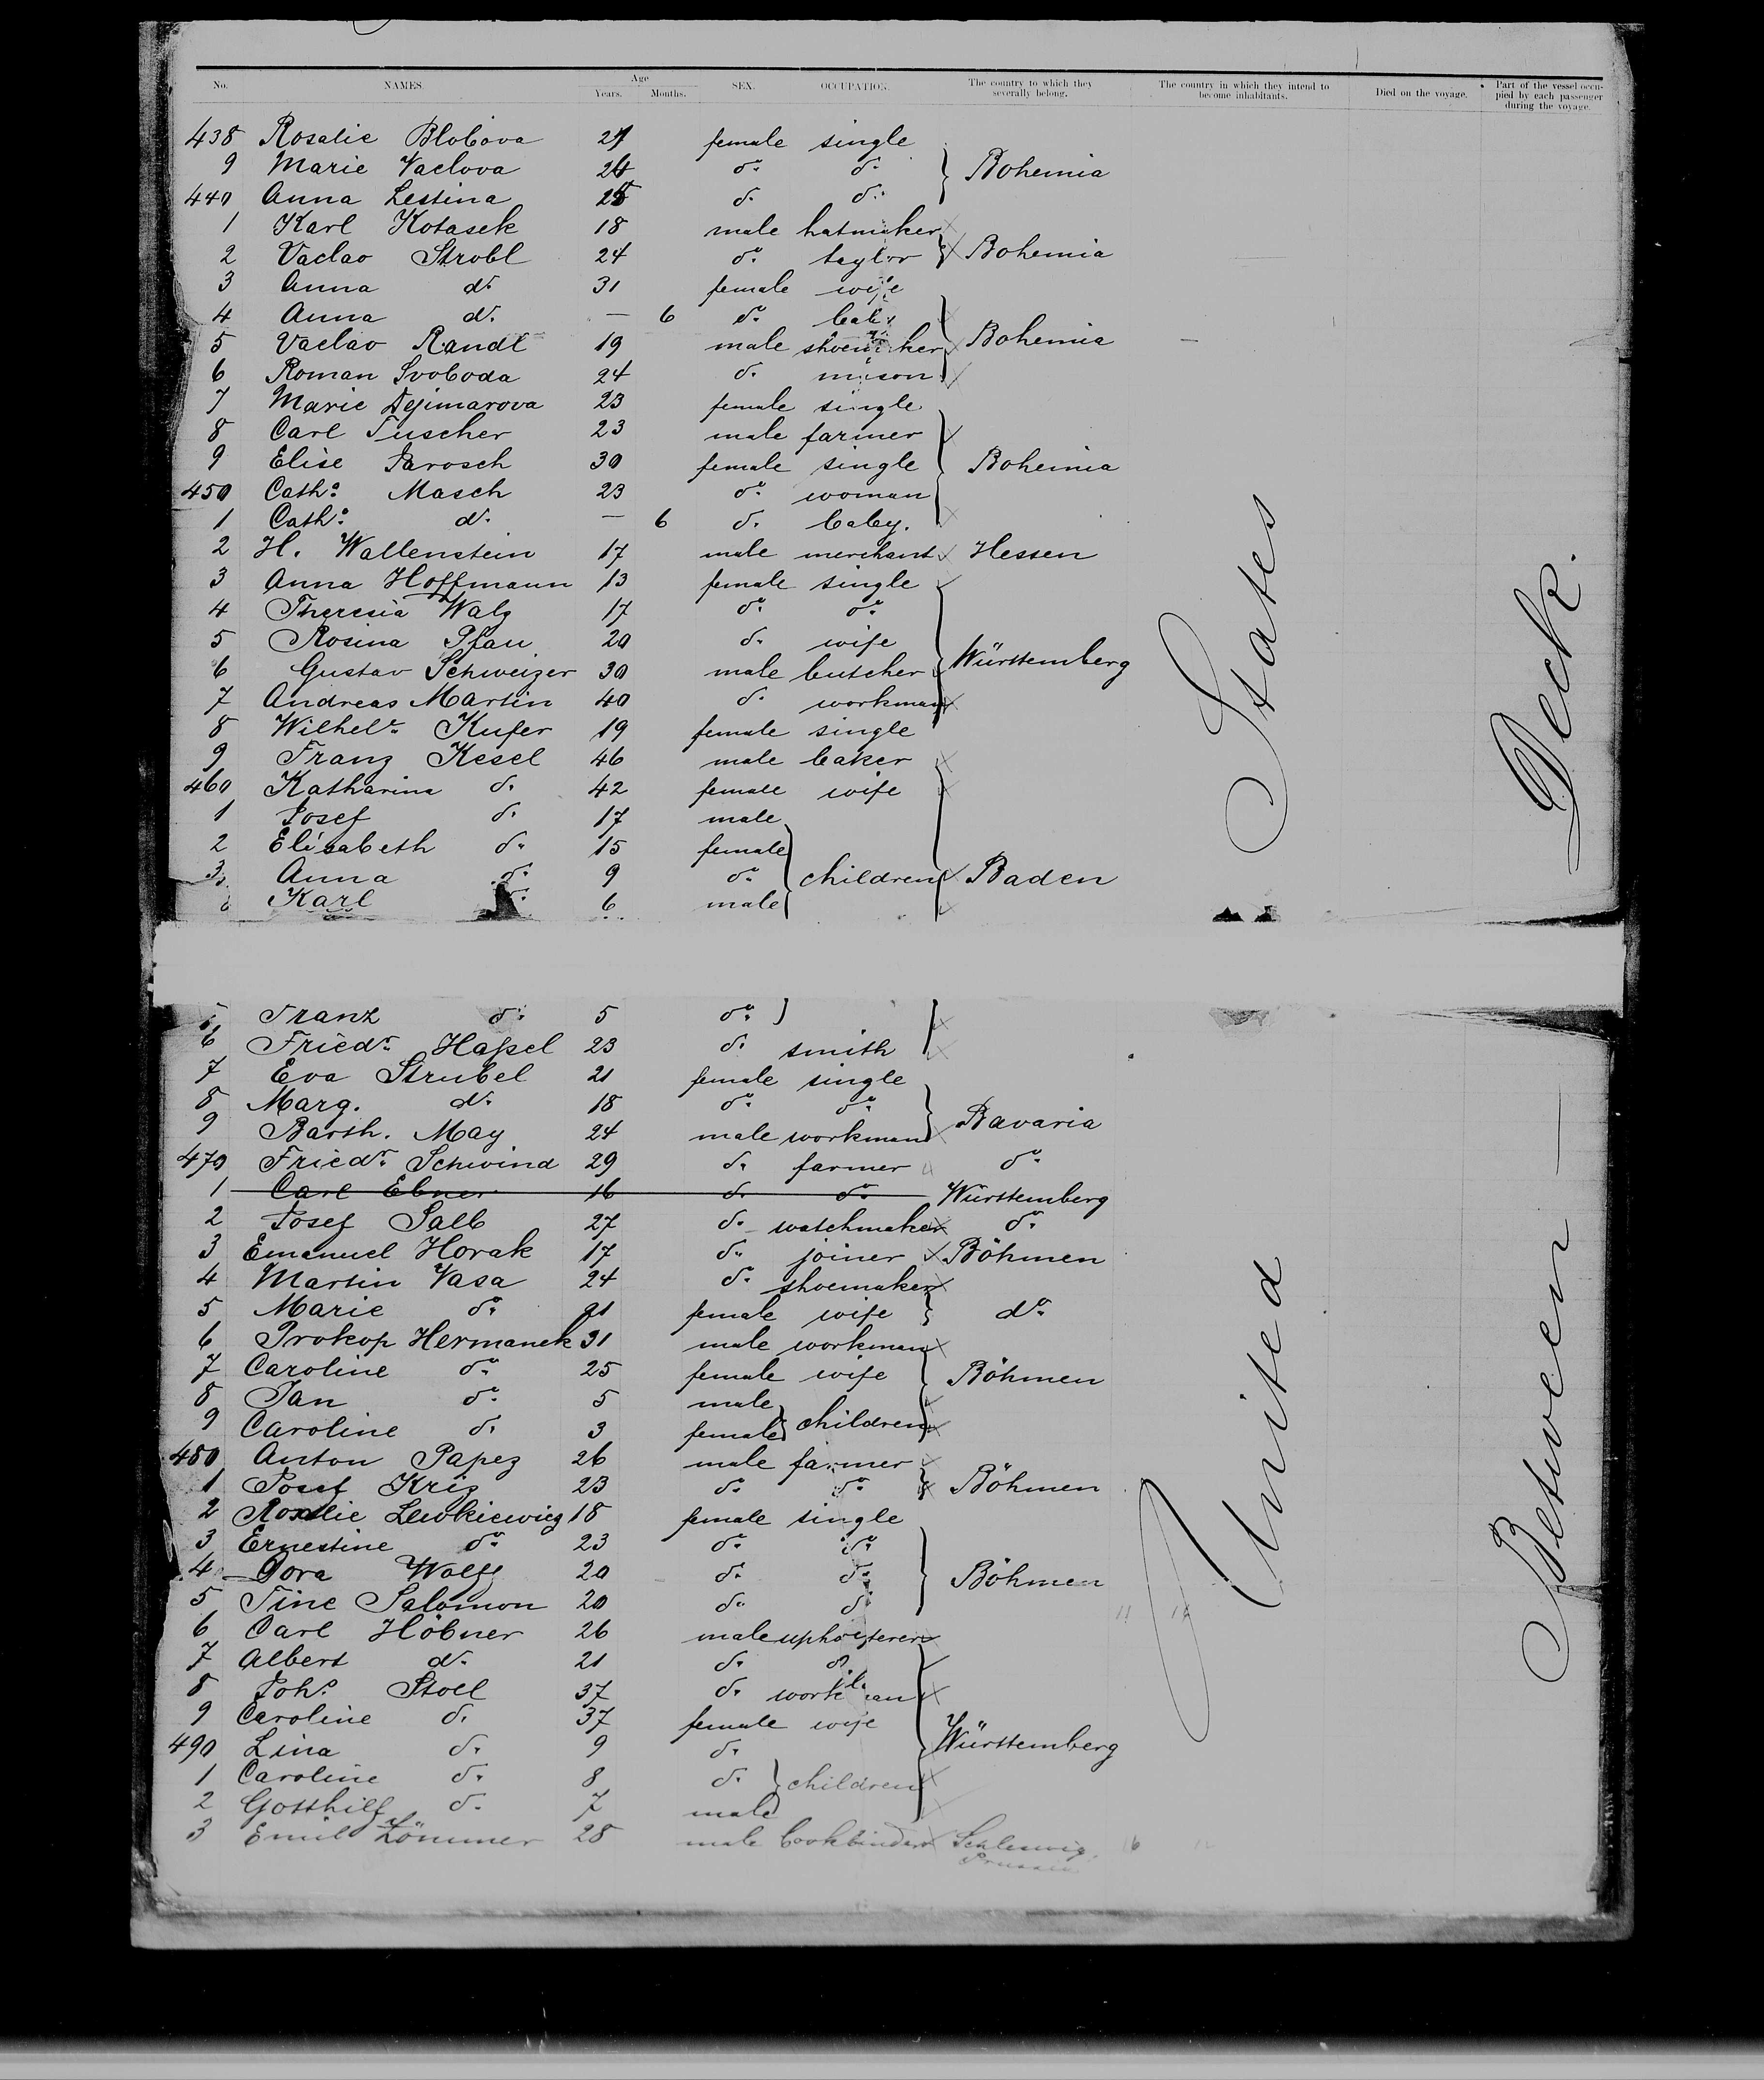 No. NAMES. Age Years. Months. SEX. OCCUPATION. The country to which they severally belong. The country in which they intend to become inhabitants. Died on the voyage. Part of the vessel occupied by each passenger during the voyage.
438 Rosalie Blobova female single
9 Marie Vaclova 24 do. do. Bohemia
440 Anna Lestina 25 do. do.
1 Karl Kotasek 18 male hatmaker
2 Vaclav Strobl 24 do. taylor Bohemia
3 Anna do. 31 female wife
4 Anna do. — 6 do. baby
5 Vaclav Randl 19 male shoemaker Bohemia
6 Roman Svoboda 24 do. mason
7 Marie Dejmarova 23 female single
8 Carl Tuscher 23 male farmer
9 Elise Jarosch 30 female single Bohemia
450 Cath. Masch 23 do. woman
1 Cath. do. — 6 do. baby.
2 H. Wallenstein 17 male merchant Hessen
3 Anna Hoffmann 13 female single
4 Theresia Walz 17 do. do.
5 Rosina Pfau 20 do. wife
6 Gustav Schweizer 30 male butcher Württemberg
7 Andreas Martin 40 do. workman
8 Wilhel. Kufer 19 female single
9 Franz Kesel 46 male baker
460 Katharina do. 42 female wife
1 Josef do. 17 male
2 Elisabeth do. 15 female
3 Anna do. 9 do. children Baden
Karl do. 6 male
5 Franz do. 5 do.
6 Friedr. Haßel 23 do. smith
7 Eva Strubel 21 female single
8 Marg. do. 18 do. do.
9 Barth. May 24 male workman Bavaria
470 Friedr. Schwind 29 do. farmer do.
1 Carl Ebner 16 do. do. Württemberg
2 Josef Salb 27 do. watchmaker do.
3 Emanuel Horak 17 do. joiner Böhmen
4 Martin Vasa 24 do. shoemaker
5 Marie do. 21 female wife do.
6 Prokop Hermanek 31 male workman
7 Caroline do. 25 female wife Böhmen
8 Jan do. 5 male
9 Caroline do. 3 female children
480 Anton Papez 26 male farmer
1 Josef Kriz 23 do. do. Böhmen
2 Rosalie Lewkiewicz 18 female single
3 Ernestine do. 23 do. do.
4 Dora Wolff 20 do. do. Böhmen
5 Tine Salomon 20 do. do.
6 Carl Höbner 26 male upholsterer
7 Albert do. 21 do. do.
8 Joh. Stoll 37 do. workman
9 Caroline do. 37 female wife
490 Lina do. 9 do. Württemberg
1 Caroline do. 8 do. children
2 Gotthilf do. 7 male
3 Emil 28 male bookbinder Schleswig
Prussia
United States
Between Deck.